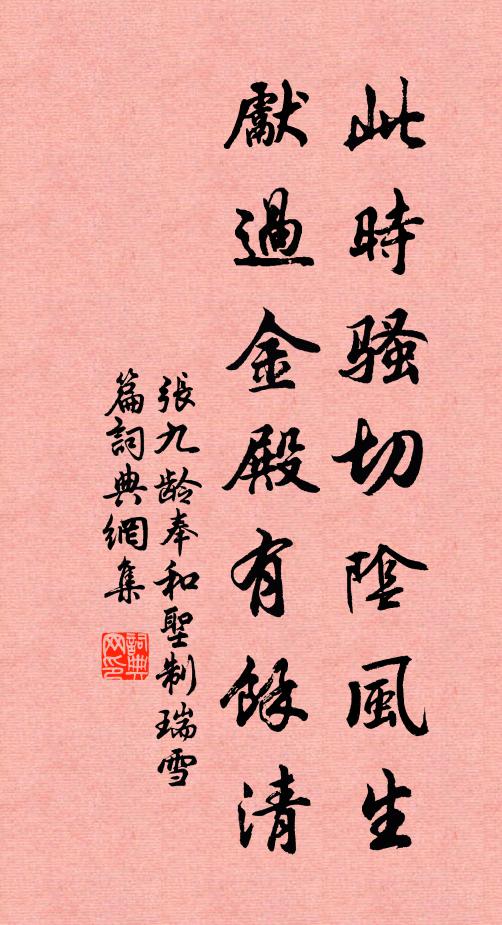 此時騷切陰風生
獻過金殿有餘清
張九龄奉和聖制瑞雪
篇詞典網集
詞典网印